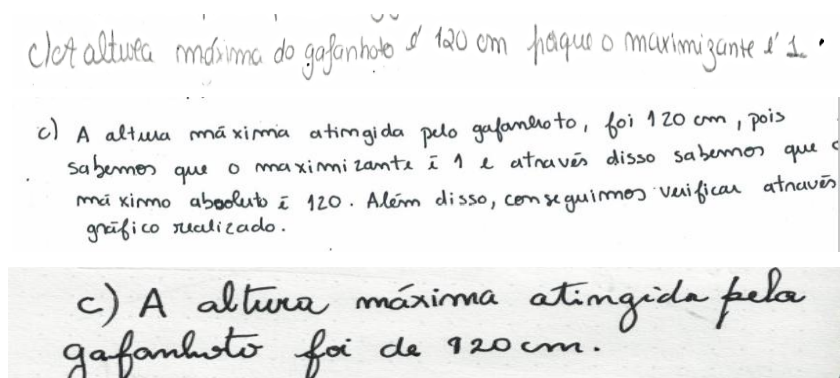 c) A altura máxima do gafanhoto é 120 cm porque o maximizante é 1.
c) A altura máxima atingida pelo gafanhoto, foi 120 cm, pois
sabemos que o maximizante é 1 e através disso sabemos que o
máximo absoluto é 120. Além disso, conseguimos verificar através
gráfico realizado.
c) A altura máxima atingida pela
gafanhoto foi de 120 cm.